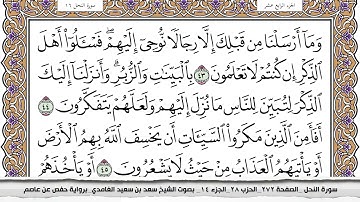 الجزء الرابع عشر
سورة النحل ١٦
وَمَآ أَرْسَلْنَا مِن قَبْلِكَ إِلَّا رِجَالًا نُّوحِىٓ إِلَيْهِمْ ۚ فَسْـَٔلُوٓا۟ أَهْلَ
ٱلذِّكْرِ إِن كُنتُمْ لَا تَعْلَمُونَ ٤٣ بِٱلْبَيِّنَـٰتِ وَٱلزُّبُرِ ۗ وَأَنزَلْنَآ إِلَيْكَ
ٱلذِّكْرَ لِتُبَيِّنَ لِلنَّاسِ مَا نُزِّلَ إِلَيْهِمْ وَلَعَلَّهُمْ يَتَفَكَّرُونَ ٤٤
أَفَأَمِنَ ٱلَّذِينَ مَكَرُوا۟ ٱلسَّيِّـَٔاتِ أَن يَخْسِفَ ٱللَّهُ بِهِمُ ٱلْأَرْضَ
أَوْ يَأْتِيَهُمُ ٱلْعَذَابُ مِنْ حَيْثُ لَا يَشْعُرُونَ ٤٥ أَوْ يَأْخُذَهُمْ
سورة النحل_ الصفحة ٢٧٢_ الحزب ٢٨_ الجزء ١٤_ بصوت الشيخ سعد بن سعيد الغامدي_ برواية حفص عن عاصم